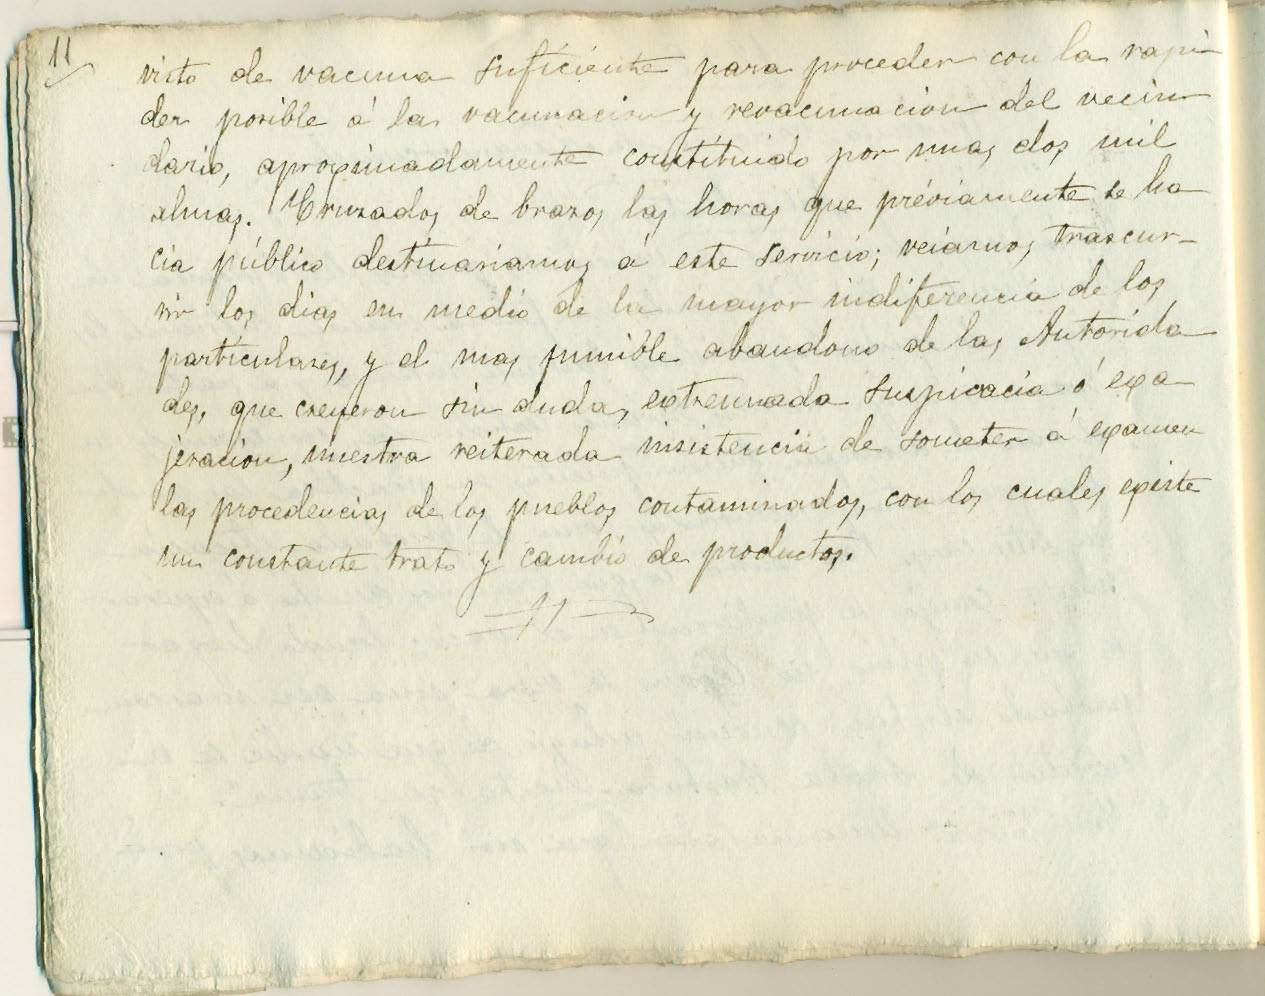 11
visto de vacuna suficiente para proceder con la rapi
dez posible á la vacunacion y revacunacion del vecin
dario, aproximadamente constituido por unas dos mil
almas. Cruzados de brazos las horas que préviamente se ha
cia público destinariamos á este servicio; veiamos trascur-
rir los dias en medio de la mayor indiferencia de los
particulares, y el mas punible abandono de las Autorida
des, que creyeron sin duda, extremada suspicacia ó exa
jeracion, nuestra reiterada insistencia de someter á examen
las procedencias de los pueblos contaminados, con los cuales existe
un constante trato y cambio de productos.